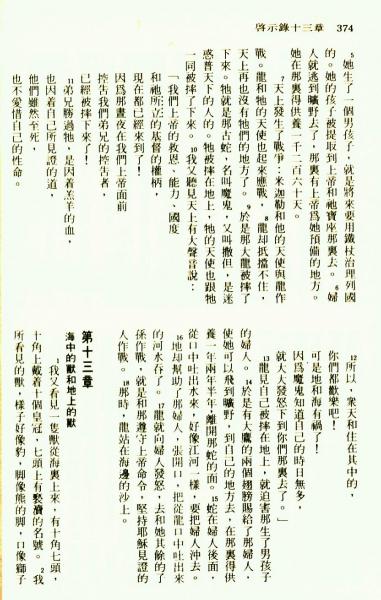 啓示錄十三章　374
⁵她生了一個男孩子，就是將來要用鐵杖治理列國
的。她的孩子被提取到上帝和祂寶座那裏去。⁶婦
人就逃到曠野去了，那裏有上帝爲她預備的地方。
她在那裏得供養一千二百六十天。
⁷天上發生了戰爭：米迦勒和他的天使與龍作
戰。龍和牠的天使也起來應戰，⁸龍却抵擋不住，
天上再也沒有牠們的地方了。⁹於是那大龍被摔了
下來。牠就是那古蛇，名叫魔鬼，又叫撒但，是迷
惑普天下的人的。牠被摔在地上，牠的天使也跟牠
一同被摔了下來。¹⁰我又聽見天上有大聲音說：
「我們上帝的救恩、能力、國度
和祂所立的基督的權柄，
現在都已經來到了！
因爲那晝夜在我們上帝面前
控告我們弟兄的控告者，
已經被摔下來了！
¹¹弟兄勝過牠，是因着羔羊的血，
也因着自己所見證的道，
他們雖然至死，
也不愛惜自己的性命。
¹²所以，衆天和住在其中的，
你們都歡樂吧！
可是地和海有禍了！
因爲魔鬼知道自己的時日無多，
就大大發怒下到你們那裏去了。」
¹³龍見自己被摔在地上，就迫害那生了男孩子
的婦人。¹⁴於是有大鷹的兩個翅膀賜給了那婦人，
使她可以飛到曠野，到自己的地方去，在那裏得供
養一年兩年半年，離開那蛇的面。¹⁵蛇在婦人後面，
從口中吐出水來，好像江河一樣，要把婦人沖去。
¹⁶地却幫助了那婦人，張開口，把從龍口中吐出來
的河水吞了。¹⁷龍就向婦人發怒，去和她其餘的子
孫作戰，就是和那遵守上帝命令，堅持耶穌見證的
人作戰。¹⁸那時，龍站在海邊的沙上。
第十三章
海中的獸和地上的獸
¹我又看見一隻獸從海裏上來，有十角七頭，
十角上戴着十個皇冠，七頭上有褻瀆的名號。²我
所看見的獸，樣子好像豹，脚像熊的脚，口像獅子